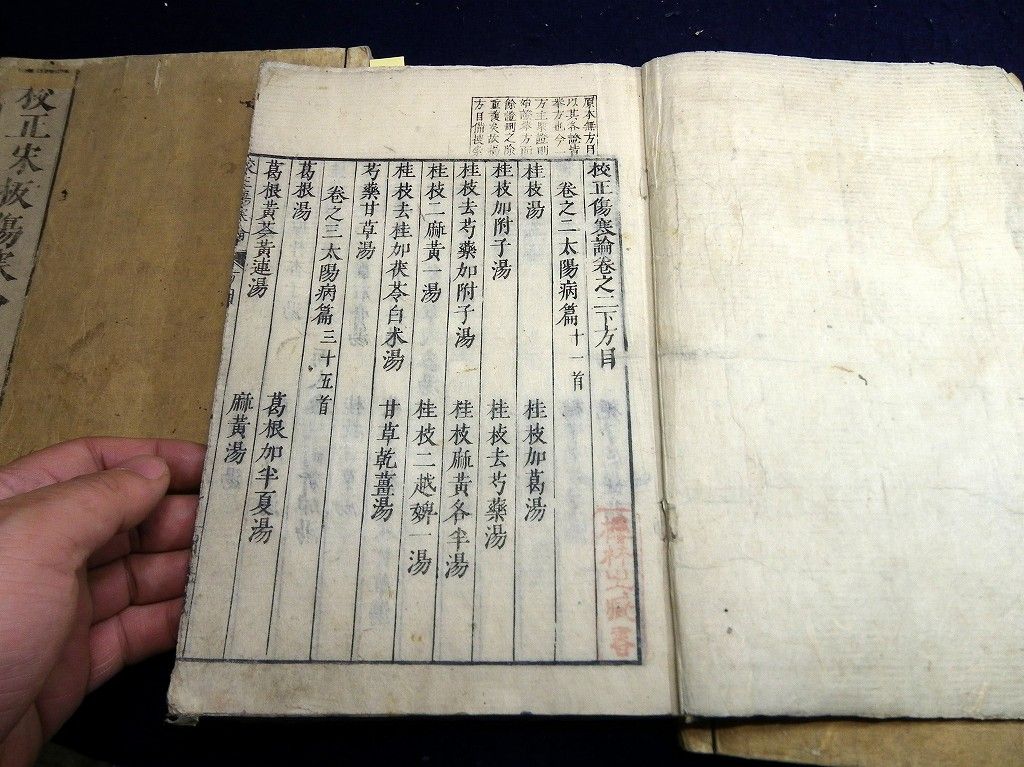 校正傷寒論卷之二下方目
卷之二太陽病篇十一首
桂枝湯
桂枝加葛湯
桂枝加附子湯
桂枝去芍藥湯
桂枝去芍藥加附子湯
桂枝麻黃各半湯
桂枝二麻黃一湯
桂枝二越婢一湯
桂枝去桂加茯苓白朮湯
甘草乾薑湯
芍藥甘草湯
卷之三太陽病篇三十五首
葛根湯
葛根加半夏湯
葛根黃芩黃連湯
麻黃湯
原本無方目
以其各證皆
擧方也今一
重復矣故
校正宋板傷寒